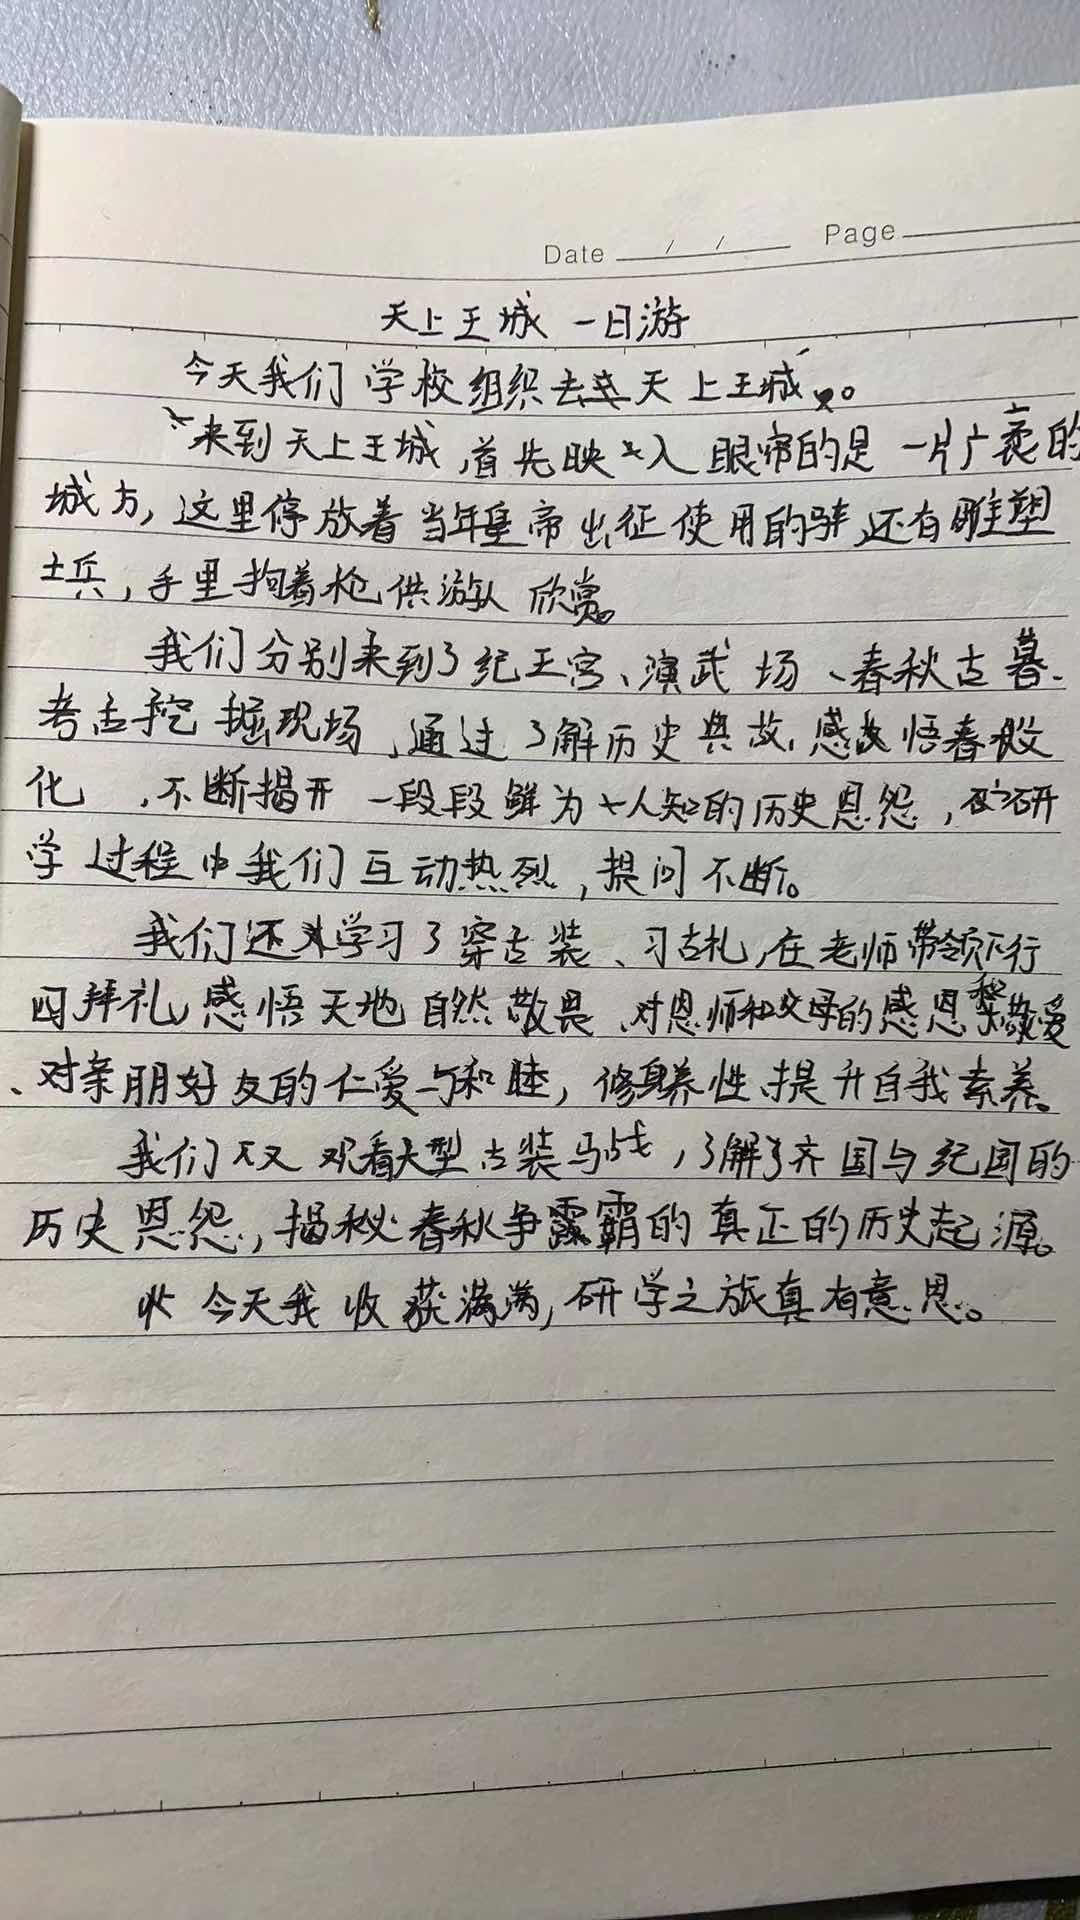 Date / / Page
天上王城 一日游
今天我们学校组织去天上王城。
来到天上王城,首先映入眼帘的是一片广袤的
城方,这里停放着当年皇帝出征使用的骅,还有雕塑
士兵,手里拘着枪供游人欣赏。
我们分别来到了纪王宫、演武场、春秋古暮、
考古挖掘现场,通过了解历史典故,感悟春秋文
化,不断揭开一段段鲜为人知的历史恩怨,在研
学过程中我们互动热烈,提问不断。
我们还学习了穿古装、习古札,在老师带领下行
四拜礼,感悟天地自然敬畏、对恩师和父母的感恩和敬爱
、对亲朋好友的仁爱与和睦,修身养性,提升自我素养。
我们又观看大型古装马战,了解了齐国与纪国的
历史恩怨,揭秘春秋争霸的真正的历史起源。
今天我收获满满,研学之旅真有意思。